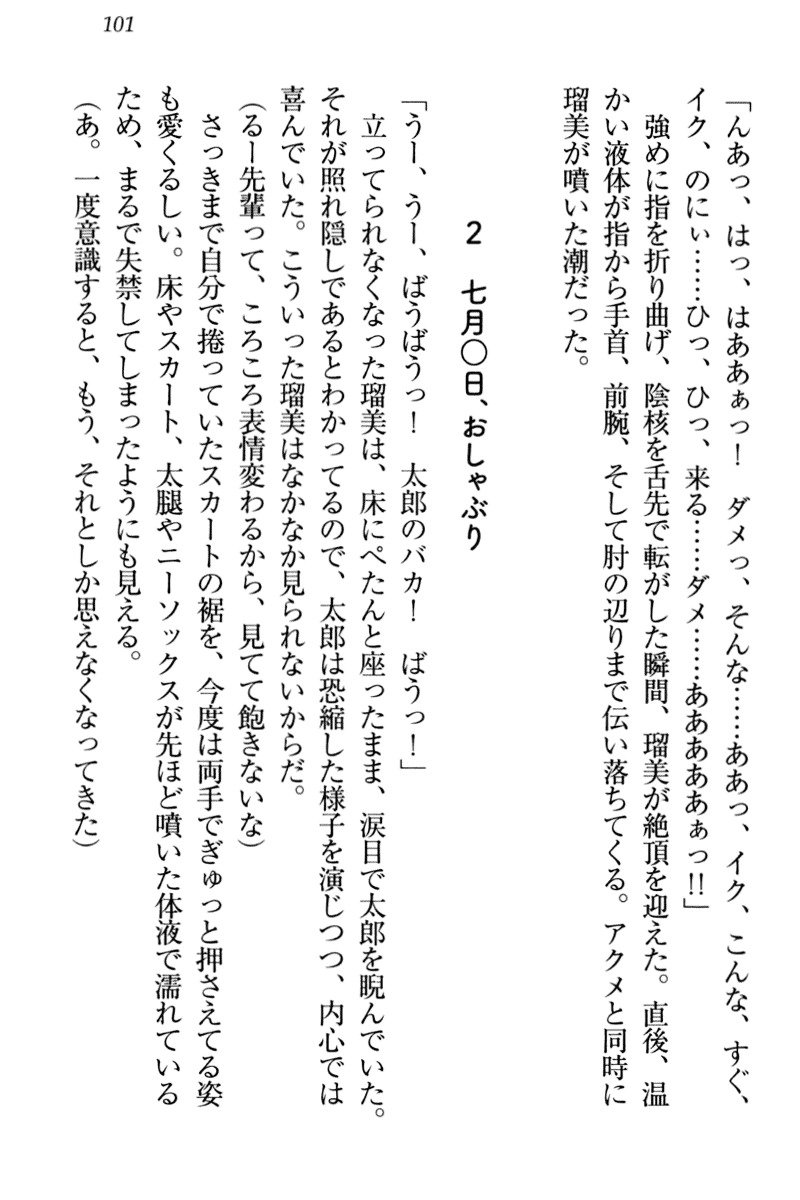 101
「んあっ、はっ、はああぁっ！　ダメっ、そんな……ああっ、イク、こんな、すぐ、
イク、のにぃ……ひっ、ひっ、来る……ダメ……あああああぁっ!!」
　強めに指を折り曲げ、陰核を舌先で転がした瞬間、瑠美が絶頂を迎えた。直後、温
かい液体が指から手首、前腕、そして肘の辺りまで伝い落ちてくる。アクメと同時に
瑠美が噴いた潮だった。
2　七月〇日、おしゃぶり
「うー、うー、ばうばうっ！　太郎のバカ！　ばうっ！」
　立ってられなくなった瑠美は、床にぺたんと座ったまま、涙目で太郎を睨んでいた。
それが照れ隠しであるとわかってるので、太郎は恐縮した様子を演じつつ、内心では
喜んでいた。こういった瑠美はなかなか見られないからだ。
(るー先輩って、ころころ表情変わるから、見てて飽きないな)
　さっきまで自分で捲っていたスカートの裾を、今度は両手でぎゅっと押さえてる姿
も愛くるしい。床やスカート、太腿やニーソックスが先ほど噴いた体液で濡れている
ため、まるで失禁してしまったようにも見える。
(あ。一度意識すると、もう、それとしか思えなくなってきた)